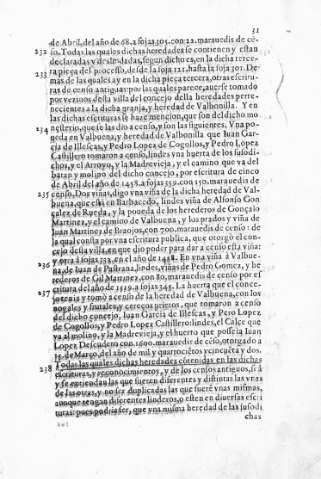 51
de Abril, del año de 68. a fojas 305. con 22. marauedis de cē-
232 so. Todas las quales dichas heredades se contienen y estan
declaradas y deslindadas, segun dicho es, en la dicha terce-
233 ra pieça del processo, desde la foja 121. hasta la foja 301. De-
mas de las quales ay en la dicha pieça tercera, otras escritu-
ras de censo antiguas por las quales parece, auerse tomado
por vezinos desta villa del concejo della heredades perte-
necientes a la dicha granja, y heredad de Valbonilla. Y en
las dichas escrituras se haze mencion, que son del dicho mo
234 nesterio, que se las dio a censo, y son las siguientes. Vna po-
ueda en Valbuena, y heredad de Valbonilla que Iuan Gar-
cia de Illescas, y Pedro Lopez de Cogollos, y Pedro Lopez
Castillero tomaron a censo, lindes vna huerta de los susodi-
chos, y el Arroyo, y la Madrevieja, y el camino que va del
batan y molino del dicho concejo, por escritura de cinco
de Abril del año de 1458. a fojas 339. con 150. marauedis de
235 censo. Dos viñas, digo vna viña de la dicha heredad de Val-
buena, que està en Barbacedo, lindes viña de Alfonso Gon
çalez de Rueda, y la poueda de los herederos de Gonçalo
Martinez, y el camino de Valbuena, y los prados y viña de
Iuan Martinez de Buniel, con 700. marauedis de censo: de
la qual consta por vna escritura publica, que otorgò el con-
cejo desta villa, en que dio poder para dar a censo esta viña:
y otra à fojas 333. en el año de 1458. En vna viña à Valbue-
236 na, de Iuan de Pastrana, lindes, viñas de Pedro Gomez, y he
rederos de Gil Martinez con 80. marauedis de censo por es
critura del año de 1519. a fojas 345. La huerta que el conce-
237 jo tenia y tomò a censo de la heredad de Valbuena, con los
nogales y frutales, y cerezos pintos, que tomaron a censo
del dicho concejo, Iuan Garcia de Illescas, y Pero Lopez
de Cogollos, y Pedro Lopez Castillero lindes, el Calçe que
va al molino, y la Madrevieja, y el huerto que posseia Iuan
Lopez Descudero con 1800. marauedis de cēso, otorgado a
15. de Março, del año de mil y quatrociētos y cincuēta y dos.
238 Todas las quales dichas heredades cōtenidas en las dichas
escrituras, y reconocimientos, y de los censos antiguos, si à
y se entiendan las que fueren diferentes y distintas las vnas
de las otras, y no sea duplicadas las que fuere vnas mismas,
aunque tengan diferentes linderos, o esten en diuersas escri
turas: pues podria ser, que vna misma heredad de las susodi
chas